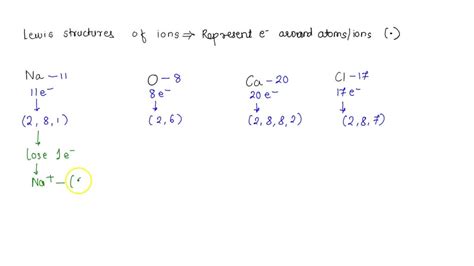 Lewis structures of ions ⇒ Represent e⁻ around atoms/ions (·)
Na – 11 O – 8 Ca – 20 Cl – 17
11e⁻ 8e⁻ 20e⁻ 17e⁻
↓ ↓ ↓ ↓
(2, 8, 1) (2, 6) (2, 8, 8, 2) (2, 8, 7)
↓
Lose 1e⁻
↓
Na⁺ – (